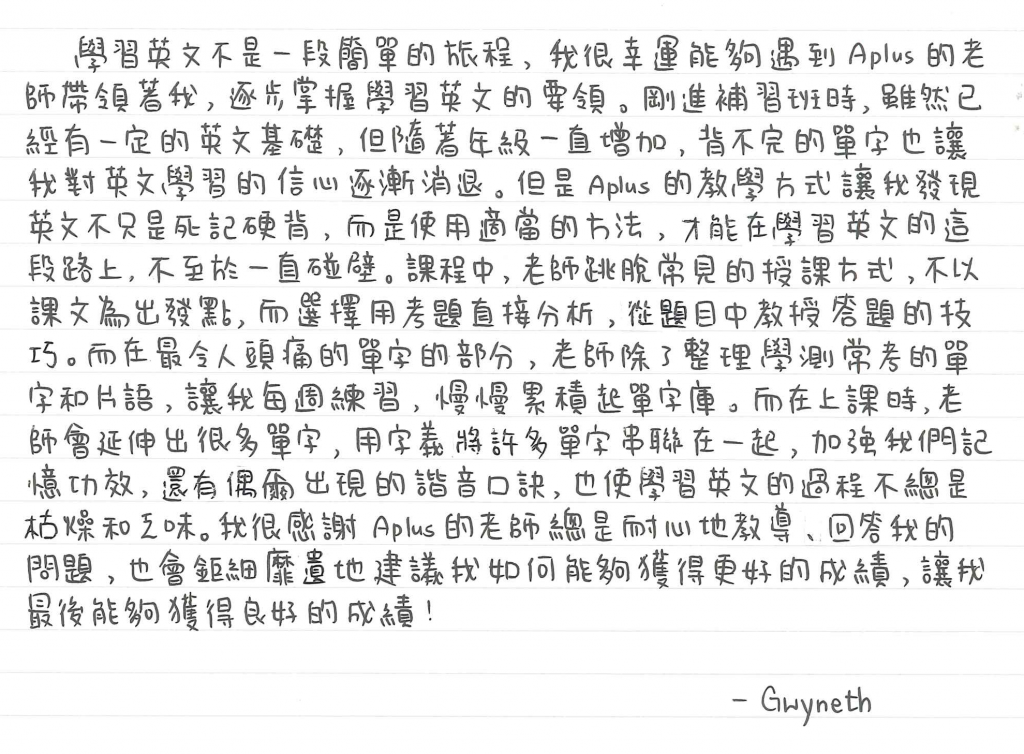 學習英文不是一段簡單的旅程，我很幸運能夠遇到 Aplus 的老
師帶領著我，逐步掌握學習英文的要領。剛進補習班時，雖然已
經有一定的英文基礎，但隨著年級一直增加，背不完的單字也讓
我對英文學習的信心逐漸消退。但是 Aplus 的教學方式讓我發現
英文不只是死記硬背，而是使用適當的方法，才能在學習英文的這
段路上，不至於一直碰壁。課程中，老師跳脫常見的授課方式，不以
課文為出發點，而選擇用考題直接分析，從題目中教授答題的技
巧。而在最令人頭痛的單字的部分，老師除了整理學測常考的單
字和片語，讓我每週練習，慢慢累積起單字庫。而在上課時，老
師會延伸出很多單字，用字義將許多單字串聯在一起，加強我們記
憶功效，還有偶爾出現的諧音口訣，也使學習英文的過程不總是
枯燥和乏味。我很感謝 Aplus 的老師總是耐心地教導、回答我的
問題，也會鉅細靡遺地建議我如何能夠獲得更好的成績，讓我
最後能夠獲得良好的成績！
– Gwyneth